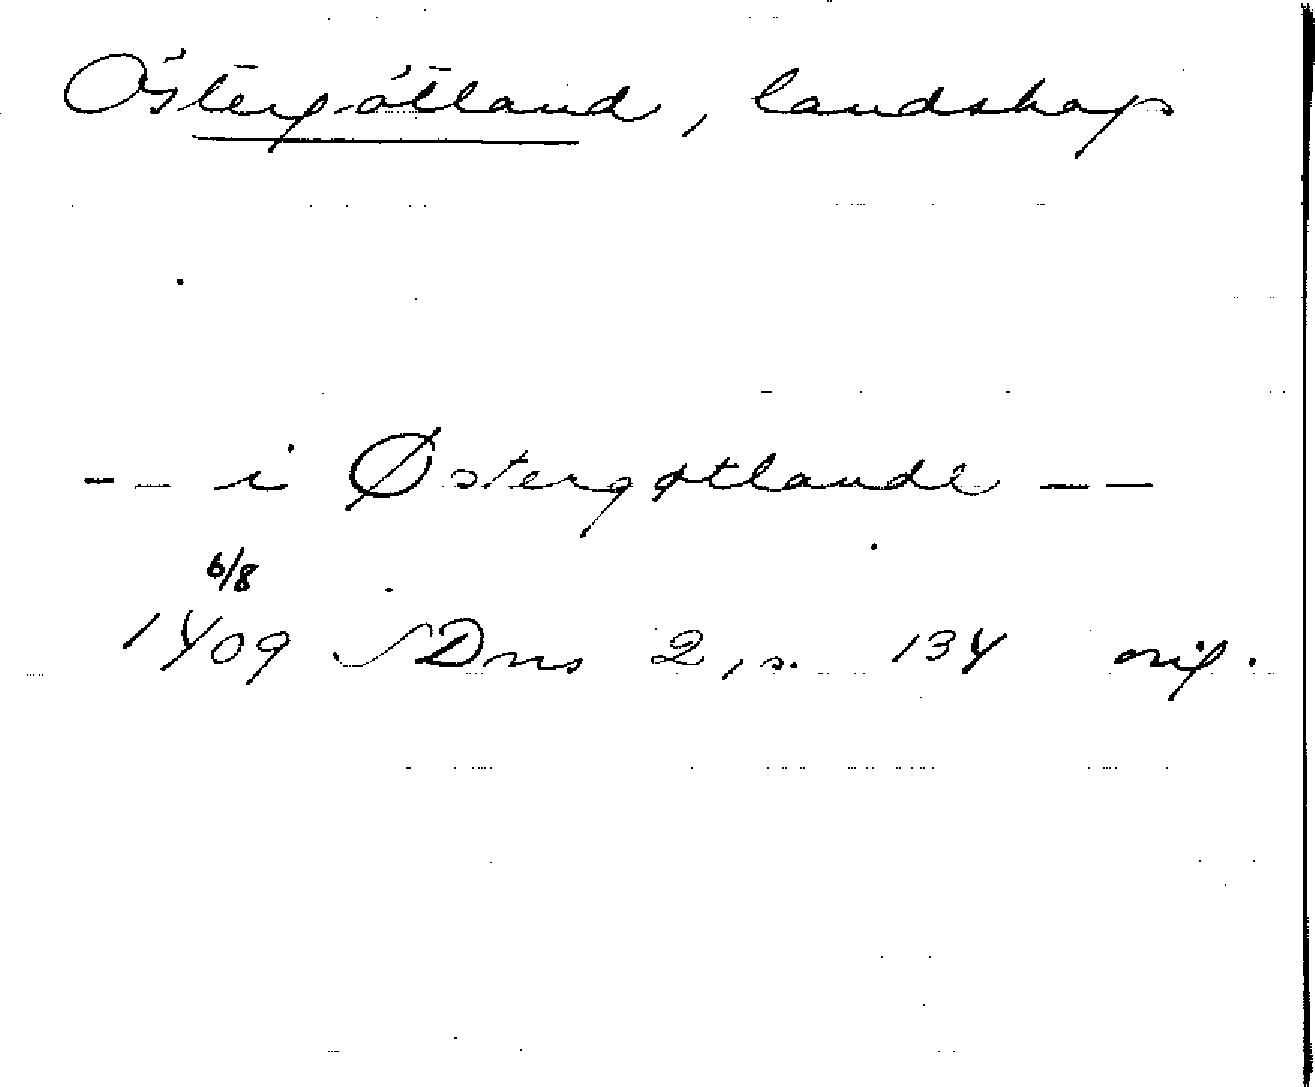 Östergötland, landskap
-- i Østergøtlande --
6/8
1409 SDns 2, s. 134 orig.